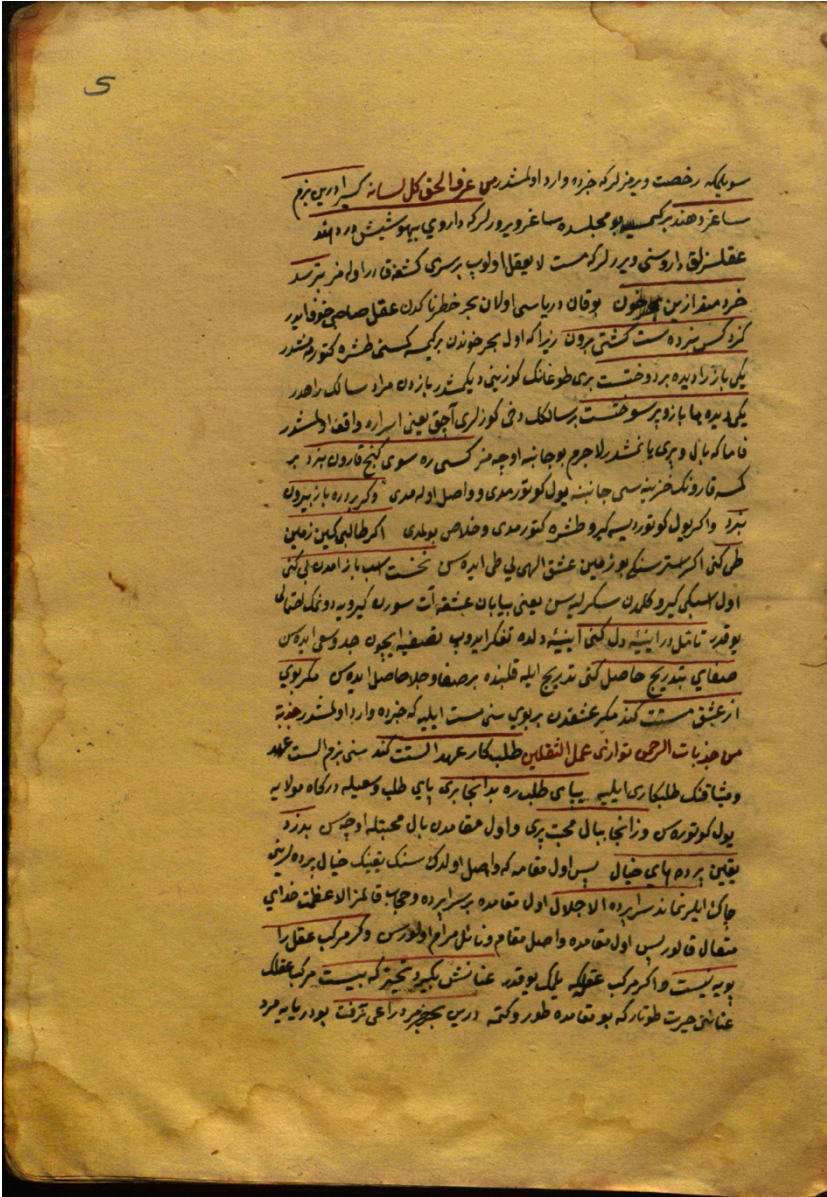 5
سویلمکه رخصت ویرمزلر که خبرده وارد اولمشدر من عرف الحق کل لسانه کسی را درین بزم
ساغر دهند بر کمسیه بو مجلسده ساغر ویرورلر که داروی بیهوشیش در دهند
عقلسزلق داروسنی ویررلر که مست لا یعقل اولوب بر سری کشفه قادر اوله مز بترسد
خردمند ازین بحر خون بو قان دریاسی اولان بحر خطرناکدن عقل صاحبی خوف ایدر
کزو کس نبرده ست کشتی برون زیرا که اول بحر خوندن بر کمسه کمسنی طشره کتورممشدر
یکی باز را دیده بر دوختست بری طوغانک کوزینی دیکمشدر بازدن مراد سالک راهدر
یکی دیده ها باز و پر سوختست بر سالکک دخی کوزلری آچق یعنی اسراره واقف اولمشدر
فاما که بال و پری یانمشدر لاجرم بو جانبه اوچه مز کسی ره سوی کنج قارون نبرد بر
کمسه قارونک خزینه سی جانبنه یول کوتورمدی و واصل اوله مدی وکر برد ره باز بیرون
نبرد واکر یول کوتوردیسه کیرو طشره کتورمدی و خلاص بولمدی اکر طالبی کین زمین
طی کنی اکر استرسنکه بو زمین عشق الهی یی طی ایده سن نخست اسب باز آمدن پی کنی
اول اسبکی کیرو کلمدن سکرلیه سن یعنی بیابان عشقه آت سورن کیرویه دونمک احتمالی
یوقدر تأمل در آیینه دل کنی آیینه دلده تفکر ایدوب تصفیه ایچون جد و سعی ایده سن
صفایی بتدریج حاصل کنی تدریج ایله قلبنده بر صفا و جلا حاصل ایده سن مکر بویی
از عشق مستت کند مکر عشقدن بر بوی سنی مست ایلیه که خبرده وارد اولمشدر جذبة
من جذبات الرحمن توازی عمل الثقلین طلبکار عهد الستت کند سنی بزم الست عهد
و میثاقنک طلبکاری ایلیه بپای طلب ره بدانجا بری پای طلب وسعیله درکاه مولایه
یول کوتوره سن وزانجا ببال محبت پری و اول مقامدن بال محبتله اوچه سن بدرد
یقین پرده های خیال پس اول مقامه که واصل اولدک سنک یقینک خیال پرده لرینی
چاک ایلر نماند سراپرده الا جلال اول مقامده بر سراپرده و حجاب قالمز الا عظمت خدای
متعال قالور پس اول مقامده واصل مقام و نائل مرام اولورسن وکر مرکب عقل را
پویه نیست واکر مرکب عقلکه یلمک یوقدر عنانش بکیرد تحیر که بیست مرکب عقلک
عناننی حیرت طوتار که بو مقامده طور وکتمه درین بحر جز مرد راعی نرفت بو دریایه مرد